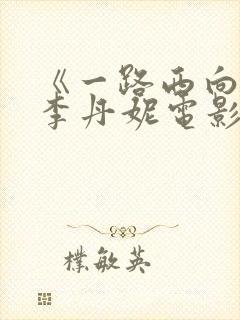 《一路西向
李丹妮電影
樸敏英